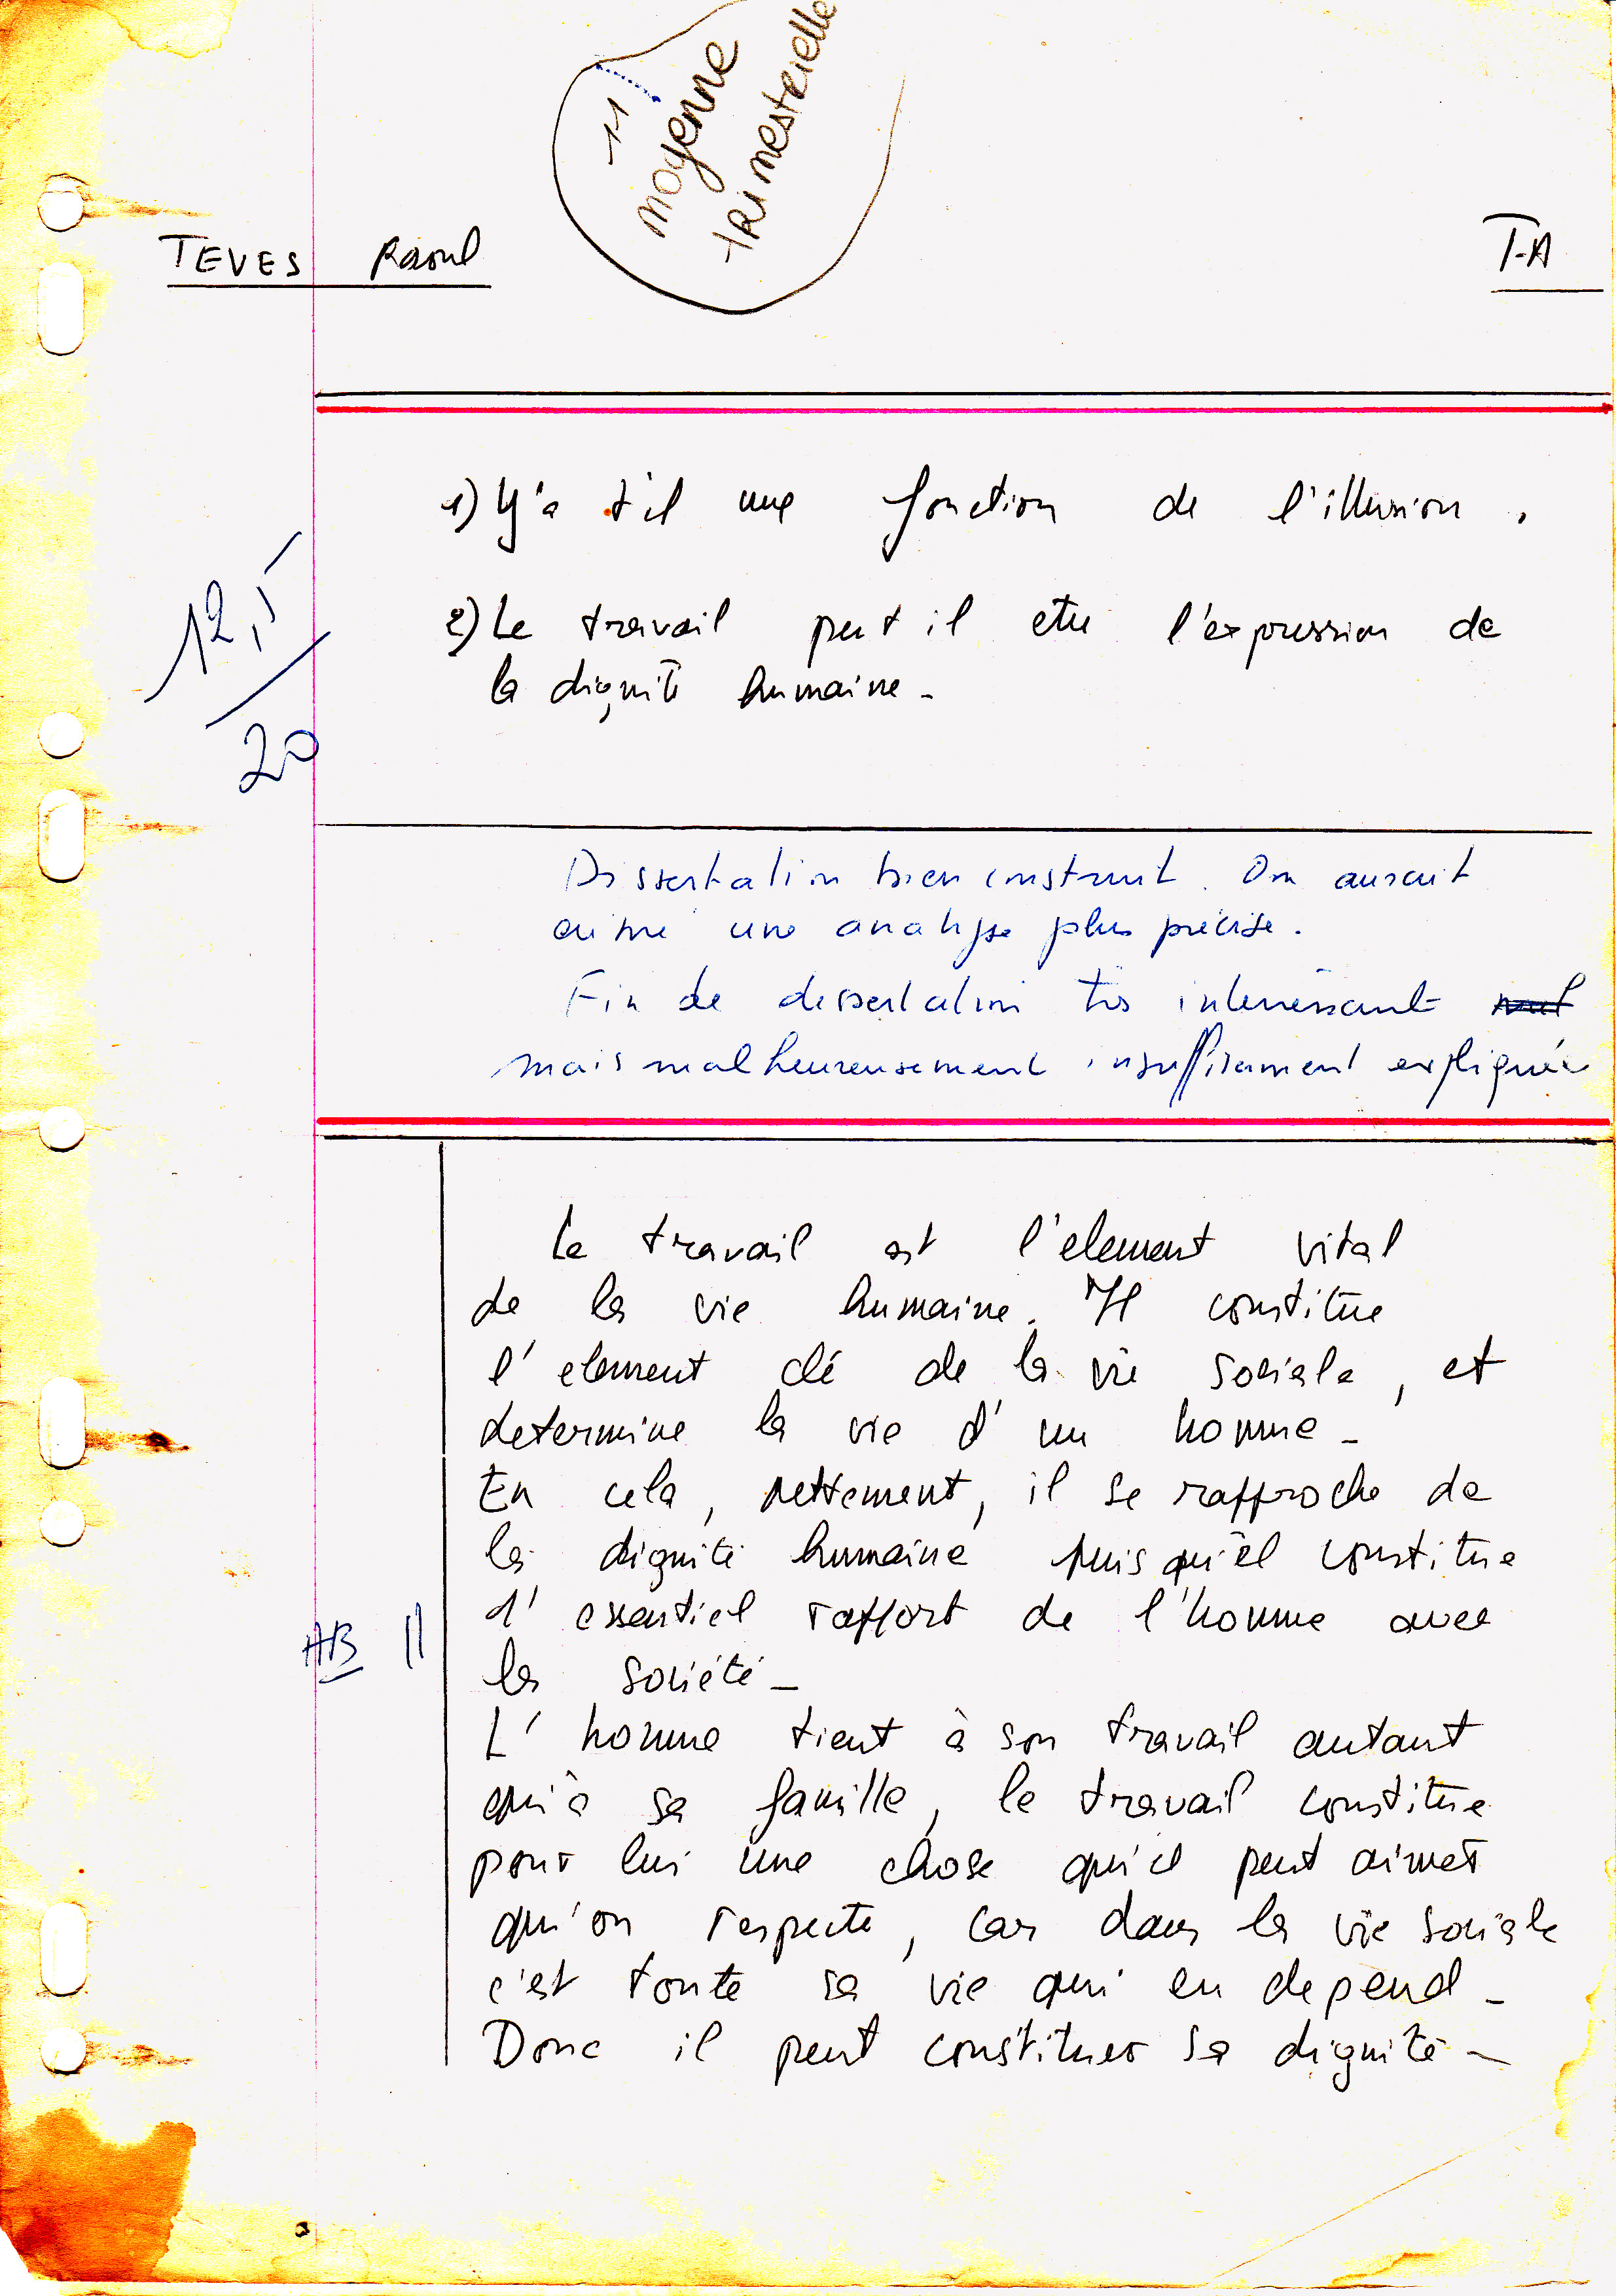 11
moyenne
trimestrielle
TEVES Raoul
T-A
1) Y'a t'il une fonction de l'illusion.
12,5
20
2) Le travail peut il etre l'expression de
la dignité humaine -
Dissertation bien construit. On aurait
aimé une analyse plus précise.
Fin de dissertation très interressante
mais malheureusement insuffisament expliquée
Le travail est l'element vital
de la vie humaine. Il constitue
l'element clé de la vie sociale, et
determine la vie d'un homme -
En cela, nettement, il se rapproche de
la dignité humaine puisqu'il constitue
l'essentiel rapport de l'homme avec
AB
la société -
L'homme tient à son travail autant
qu'à sa famille, le travail constitue
pour lui une chose qu'il peut aimer
qu'on respecte, car dans la vie sociale
c'est toute sa vie qui en depend -
Donc il peut constituer sa dignité -